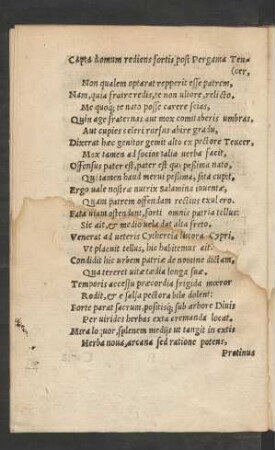 Capta domum rediens fortis post Pergama Teu=
cer,
Non qualem optarat repperit esse patrem,
Nam, quia fratre redis, te non ultore, relicto.
Me quoq; te nato posse carere scias,
Quin age fraternas aut mox comitaberis umbras,
Aut cupies celeri rursus abire gradu,
Dixerat hæc genitor gemit alto ex pectore Teucer,
Mox tamen ad socios talia uerba facit,
Offensus pater est, pater est quo pessima nato,
Qui tamen haud merui pessima, sita cupit,
Ergo uale nostræ nutrix Salamina iuuentæ,
Quam patrem offendam rectius exul ero.
Fata uiam ostendent, forti omnis patria tellus:
Sic ait, & medio uela dat alta freto.
Venerat ad ueteris Cythereia littora Cypri,
Vt placuit tellus, hic habitemus ait.
Condidit hic urbem patriæ de nomine dictam,
Qua tereret uitæ tædia longa suæ.
Temporis accessu præcordia frigida mœror
Rodit, & e salsa pectora bile dolent:
Forte parat sacrum, positisq; sub arbore Diuis
Per uirides herbas exta cremanda locat.
Mera loquor, splenem medijs ut tangit in extis
Herba noua, arcana sed ratione potens,
Protinus